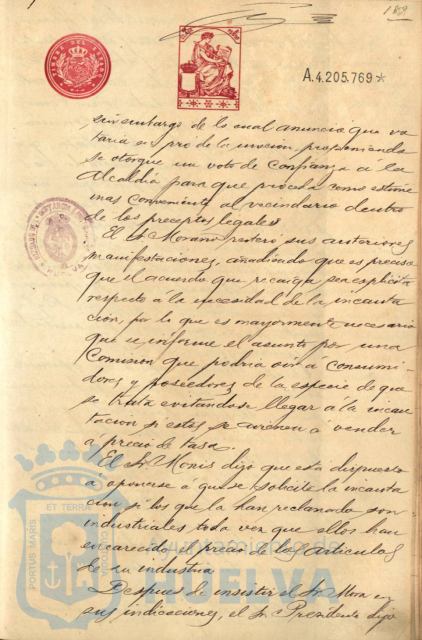 1859
A.4.205.769*
sin embargo de lo cual anuncia que vo
taria en pro de la mocion, proponiendo
se otorgue un voto de confianza á la
Alcaldía para que proceda como estime
mas conveniente al vecindario dentro
de los preceptos legales
El Sr Morano reiteró sus anteriores
manifestaciones, añadiendo que es preciso
que el acuerdo que recaiga sea explicito
respecto á la necesidad de la incauta
cion, por lo que es mayormente necesario
que se informe el asunto por una
Comision que podria oir á consumi
dores y poseedores de la especie de que
se trata evitandose llegar á la incau
tacion si estos se avienen á vender
á precio de tasa.
El Sr Monis dijo que está dispuesto
á oponerse á que se solicite la incauta
cion si los que la han reclamado son
industriales toda vez que ellos han
encarecido el precio de los articulos
de su industria
Despues de insistir el Sr Mora en
sus indicaciones, el Sr Presidente dijo
PORTUS MARIS ET TERRÆ CUSTODIA
Ayuntamiento de
HUELVA